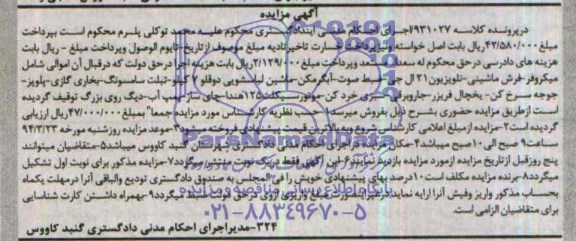 آگهی مزایده
درپرونده کلاسه ۹۳۱۰۲۷ اجرای احکام مدنی محکوم علیه محمد توکلی یلسرم محکوم است بپرداخت
مبلغ ۴۳/۵۸۰/۰۰۰ ریال بابت اصل خواسته وپرداخت خسارت تاخیر تادیه مبلغ موصوف از تاریخ تا یوم الوصول وپرداخت مبلغ - ریال بابت
هزینه های دادرسی در حق محکوم له وپرداخت مبلغ ۲/۱۲۹/۰۰۰ ریال بابت هزینه اجرا در حق دولت که درقبال آن اموالی شامل
میکروفر-فرش ماشینی-تلویزیون ۲۱ ال جی-ضبط صوت-آبگرمکن-ماشین لباسشویی دوقلو ۷ کیلو-تبلت سامسونگ-بخاری گازی-پلوپز-
جوجه سرخ کن- یخچال فریزر-جاروبرقی-سبزی خرد کن-موتورسیکلت ۱۲۵ هندا-جای ساز-پمپ آب-دیگ روی بزرگ توقیف گردیده
است از طریق مزایده حضوری بشرح ذیل بفروش میرسد: حسب نظریه کارشناس مورد مزایده جمعا" بمبلغ ۴۷/۰۰۰/۰۰۰ ریال ارزیابی
گردیده است ۲-مزایده از مبلغ اعلامی کارشناس شروع وبه بالاترین قیمت پیشنهادی فروخته میشود ۳-موعد مزایده روزشنبه مورخه ۹۴/۳/۲۳
ساعت ۹ صبح الی ۱۰ صبح میباشد ۴-مکان مزایده اجرای احکام مدنی دادگستری شهرستان گنبد کاووس میباشد ۵-متقاضیان میتوانند
پنج روز قبل از تاریخ مزایده از مورد مزایده بازدید نمایند ۶-این آگهی فقط در یک نوبت منتشر میگردد ۷-مزایده مذکور برای نوبت اول تشکیل
میگردد ۸-برنده مزایده مکلف است ۱۰ درصد بهای پیشنهادی خویش را فی المجلس به صندوق دادگستری تودیع والباقی آنرا درمهلت یکماه
بحساب مذکور واریز وفیش آنرا ارایه نماید درغیر اینصورت مبلغ واریزی از وی در حق دولت ضبط میگردد ۹-بهمراه داشتن کارت شناسایی
برای متقاضیان الزامی است.
۳۲۴-مدیر اجرای احکام مدنی دادگستری گنبد کاووس
پایگاه اطلاع رسانی مناقصه و مزایده
۰۲۱-۸۸۳۴۹۶۷۰-۵